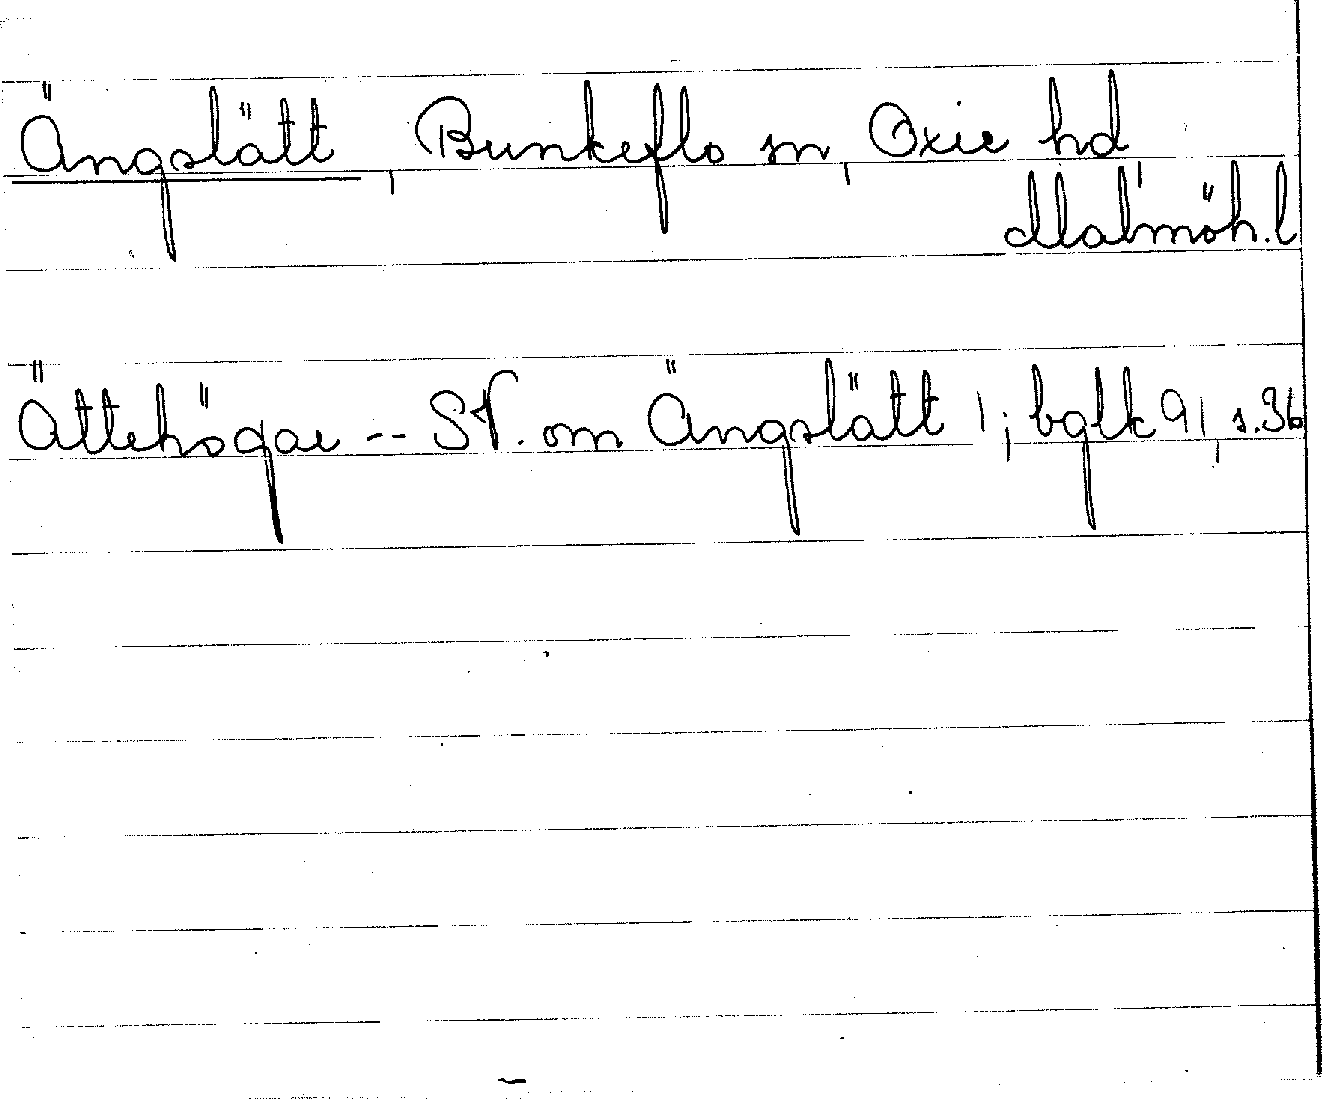 Ängslätt, Bunkeflo sn, Oxie hd
Malmöh.l
Ättehögar -- SV. om Ängslätt 1; bglk 91, s.36